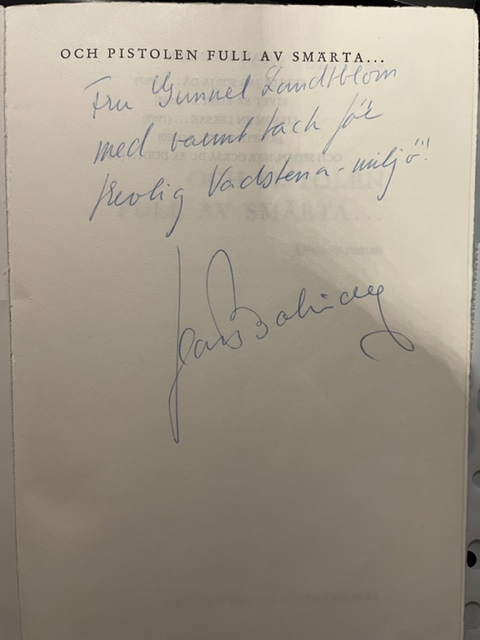 OCH PISTOLEN FULL AV SMÄRTA...
Fru Gunnel Landtblom
med varmt tack för
trevlig Vadstena-miljö!!!